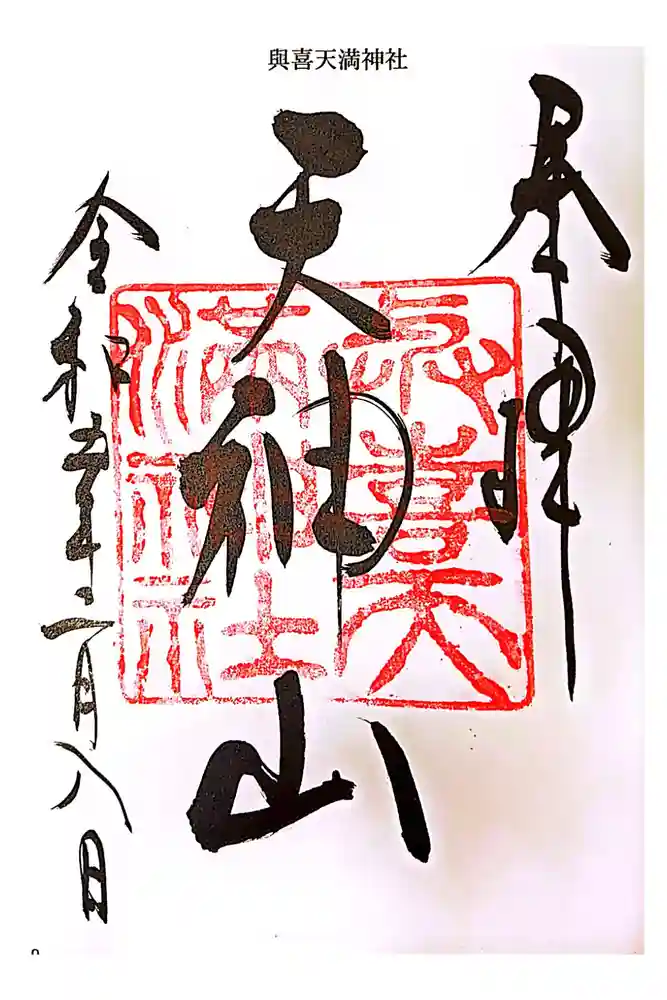 與喜天満神社
奉拝
天神山
與喜天
満神社
令和五年二月八日